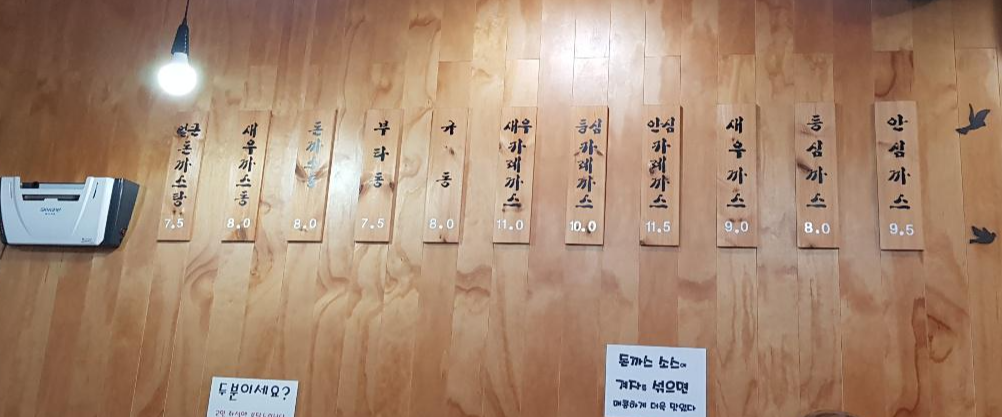 얼큰
돈까스탕
7.5
새우까스동
8.0
돈까스동
8.0
부타동
7.5
규동
8.0
새우
카레까스
11.0
등심
카레까스
10.0
안심
카레까스
11.5
새우까스
9.0
등심까스
8.0
안심까스
9.5
두분이세요?
돈까스 소스에
겨자를 섞으면
매콤하게 더욱 맛있다